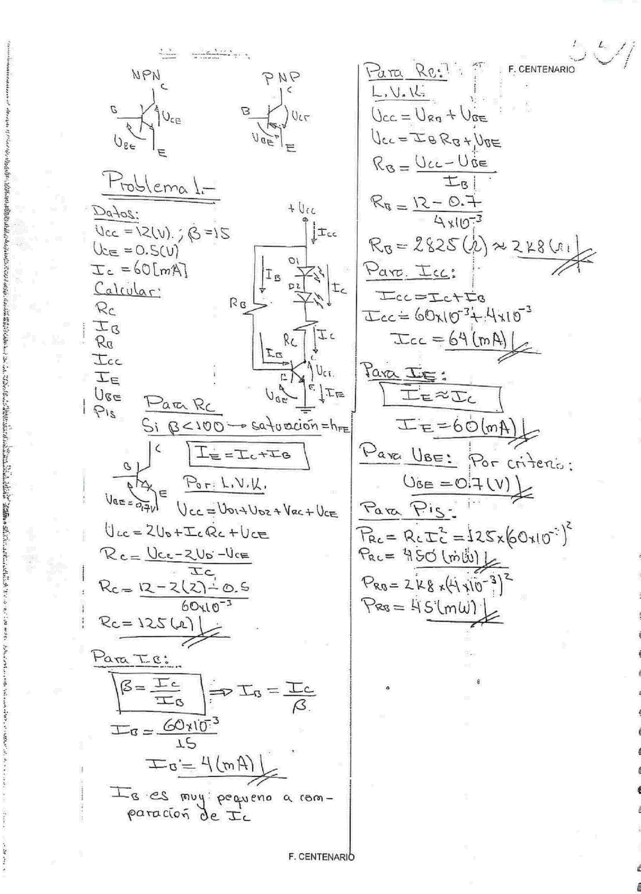 NPN
PNP
C
C
B
UCE
B
UBE
E
UBE
E
Problema 1.-
Datos:
Ucc = 12(v). ; β = 15
UCE = 0.5(v)
Ic = 60[mA]
Calcular:
Rc
IB
RB
Icc
IE
UBE
Pis
+ Ucc
Icc
D1
IB
D2
Ic
RB
Rc
Ic
IB
UBE
IE
Para Rc
Si β<100 → saturación = hFE
IE = Ic + IB
C
B
E
UBE = 0.7v
Por L.V.K.
Ucc = UD1 + UD2 + VRC + UCE
Ucc = 2UD + IcRc + UCE
Rc = Ucc - 2UD - UCE
Ic
Rc = 12 - 2(2) - 0.5
60x10⁻³
Rc = 125(Ω)
Para IB:
β = Ic / IB ⇒ IB = Ic / β
IB = 60x10⁻³
15
IB = 4(mA)
IB es muy pequeno a com-
paración de Ic
F. CENTENARIO
Para RB:
F. CENTENARIO
L.V.K.
Ucc = URB + UBE
Ucc = IB RB + UBE
RB = Ucc - UBE
IB
RB = 12 - 0.7
4x10⁻³
RB = 2825(Ω) ≈ 2k8(Ω)
Para Icc:
Icc = Ic + IB
Icc = 60x10⁻³ + 4x10⁻³
Icc = 64(mA)
Para IE:
IE ≈ Ic
IE = 60(mA)
Para UBE: Por criterio:
UBE = 0.7(V)
Para Pis:
PRC = Rc Ic² = 125x(60x10⁻³)²
PRC = 450(mW)
PRB = 2k8x(4x10⁻³)²
PRB = 45(mW)